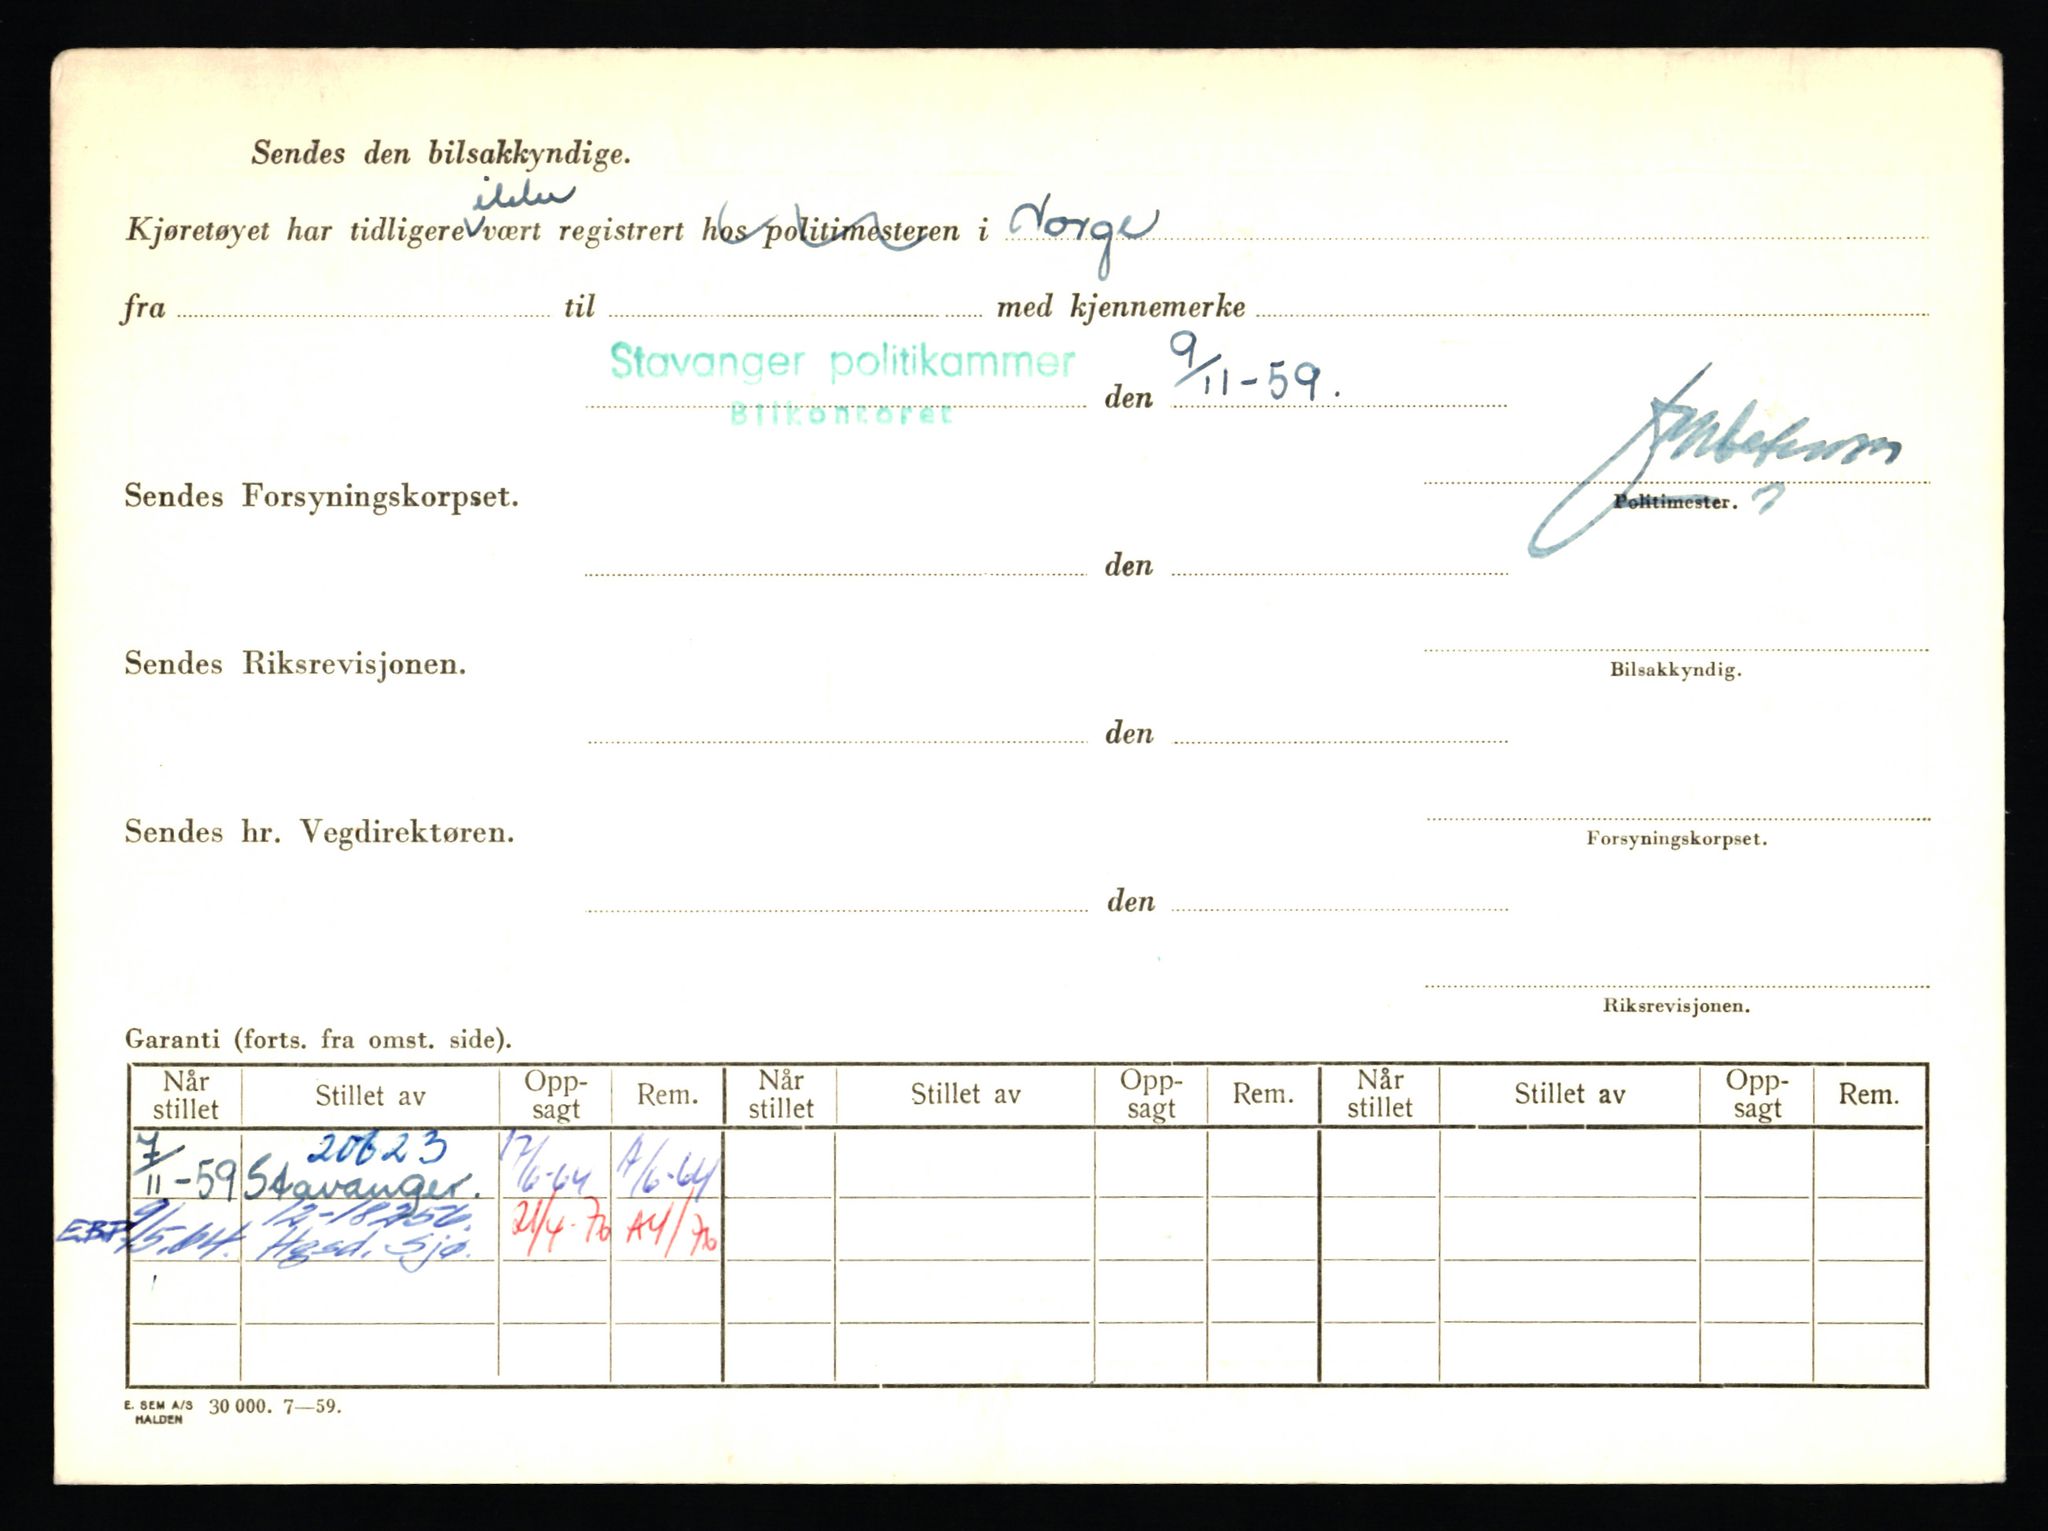 Sendes den bilsakkyndige.
ikke
Kjøretøyet har tidligere vært registrert hos politimesteren i Norge
fra til med kjennemerke
Stavanger politikammer
Bilkontoret
den 9/11-59.
Sendes Forsyningskorpset.
Politimester.
den
Sendes Riksrevisjonen.
Bilsakkyndig.
den
Sendes hr. Vegdirektøren.
Forsyningskorpset.
den
Riksrevisjonen.
Garanti (forts. fra omst. side).
Når stillet Stillet av Opp-sagt Rem. Når stillet Stillet av Opp-sagt Rem. Når stillet Stillet av Opp-sagt Rem.
7/11-59 20623 Stavanger. 17/6-64
9/5.64. Hgsd. Sjø. 21/4-76 A4/76
E. SEM A/S HALDEN 30 000. 7—59.